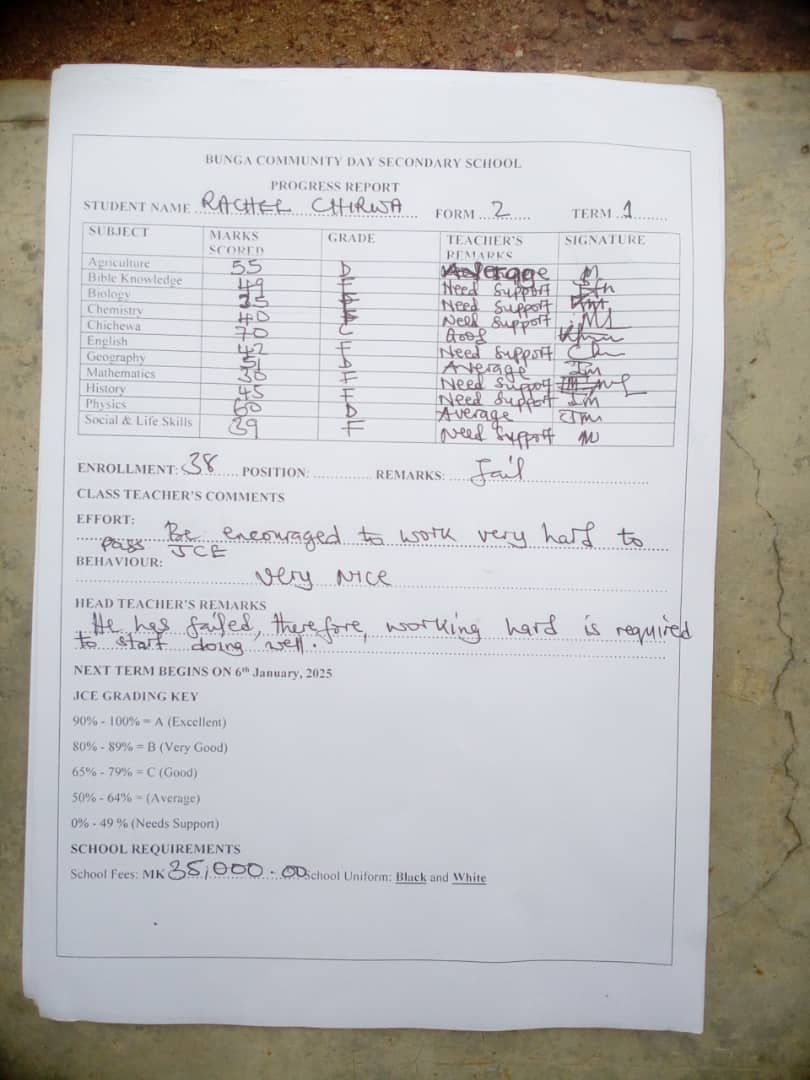 BUNGA COMMUNITY DAY SECONDARY SCHOOL
PROGRESS REPORT
STUDENT NAME RACHEL CHIRWA FORM 2 TERM 1
SUBJECT MARKS SCORED GRADE TEACHER'S REMARKS SIGNATURE
Agriculture 55 D Average
Bible Knowledge 49 F Need Support
Biology 35 F Need Support
Chemistry 40 F Need Support
Chichewa 70 C Good
English 42 F Need Support
Geography 51 D Average
Mathematics 30 F Need Support
History 45 F Need Support
Physics 60 D Average
Social & Life Skills 39 F Need Support
ENROLLMENT: 38 POSITION: REMARKS: Fail
CLASS TEACHER'S COMMENTS
EFFORT: Be encouraged to work very hard to
pass JCE
BEHAVIOUR: Very Nice
HEAD TEACHER'S REMARKS
He has failed, therefore, working hard is required
to start doing well.
NEXT TERM BEGINS ON 6th January, 2025
JCE GRADING KEY
90% - 100% = A (Excellent)
80% - 89% = B (Very Good)
65% - 79% = C (Good)
50% - 64% = (Average)
0% - 49 % (Needs Support)
SCHOOL REQUIREMENTS
School Fees: MK 35,000.00 School Uniform: Black and White